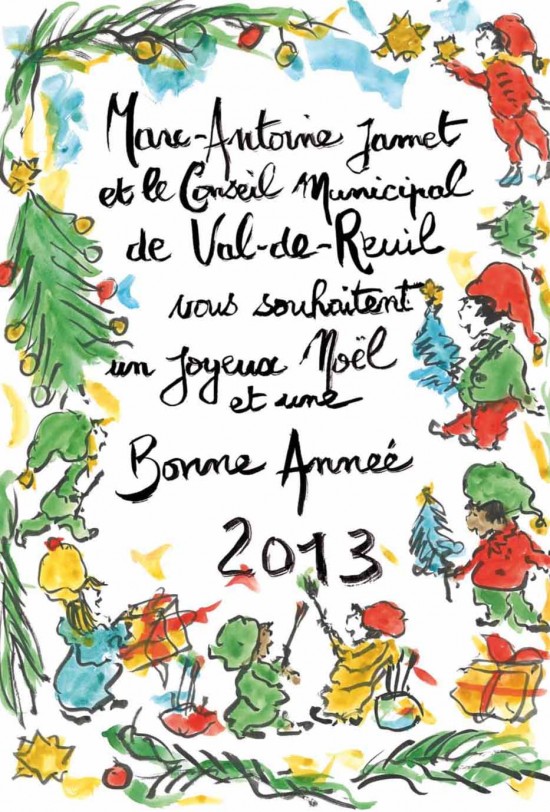 Marc-Antoine Jamet
et le Conseil Municipal
de Val-de-Reuil
vous souhaitent
un Joyeux Noël
et une
Bonne Anneé
2013